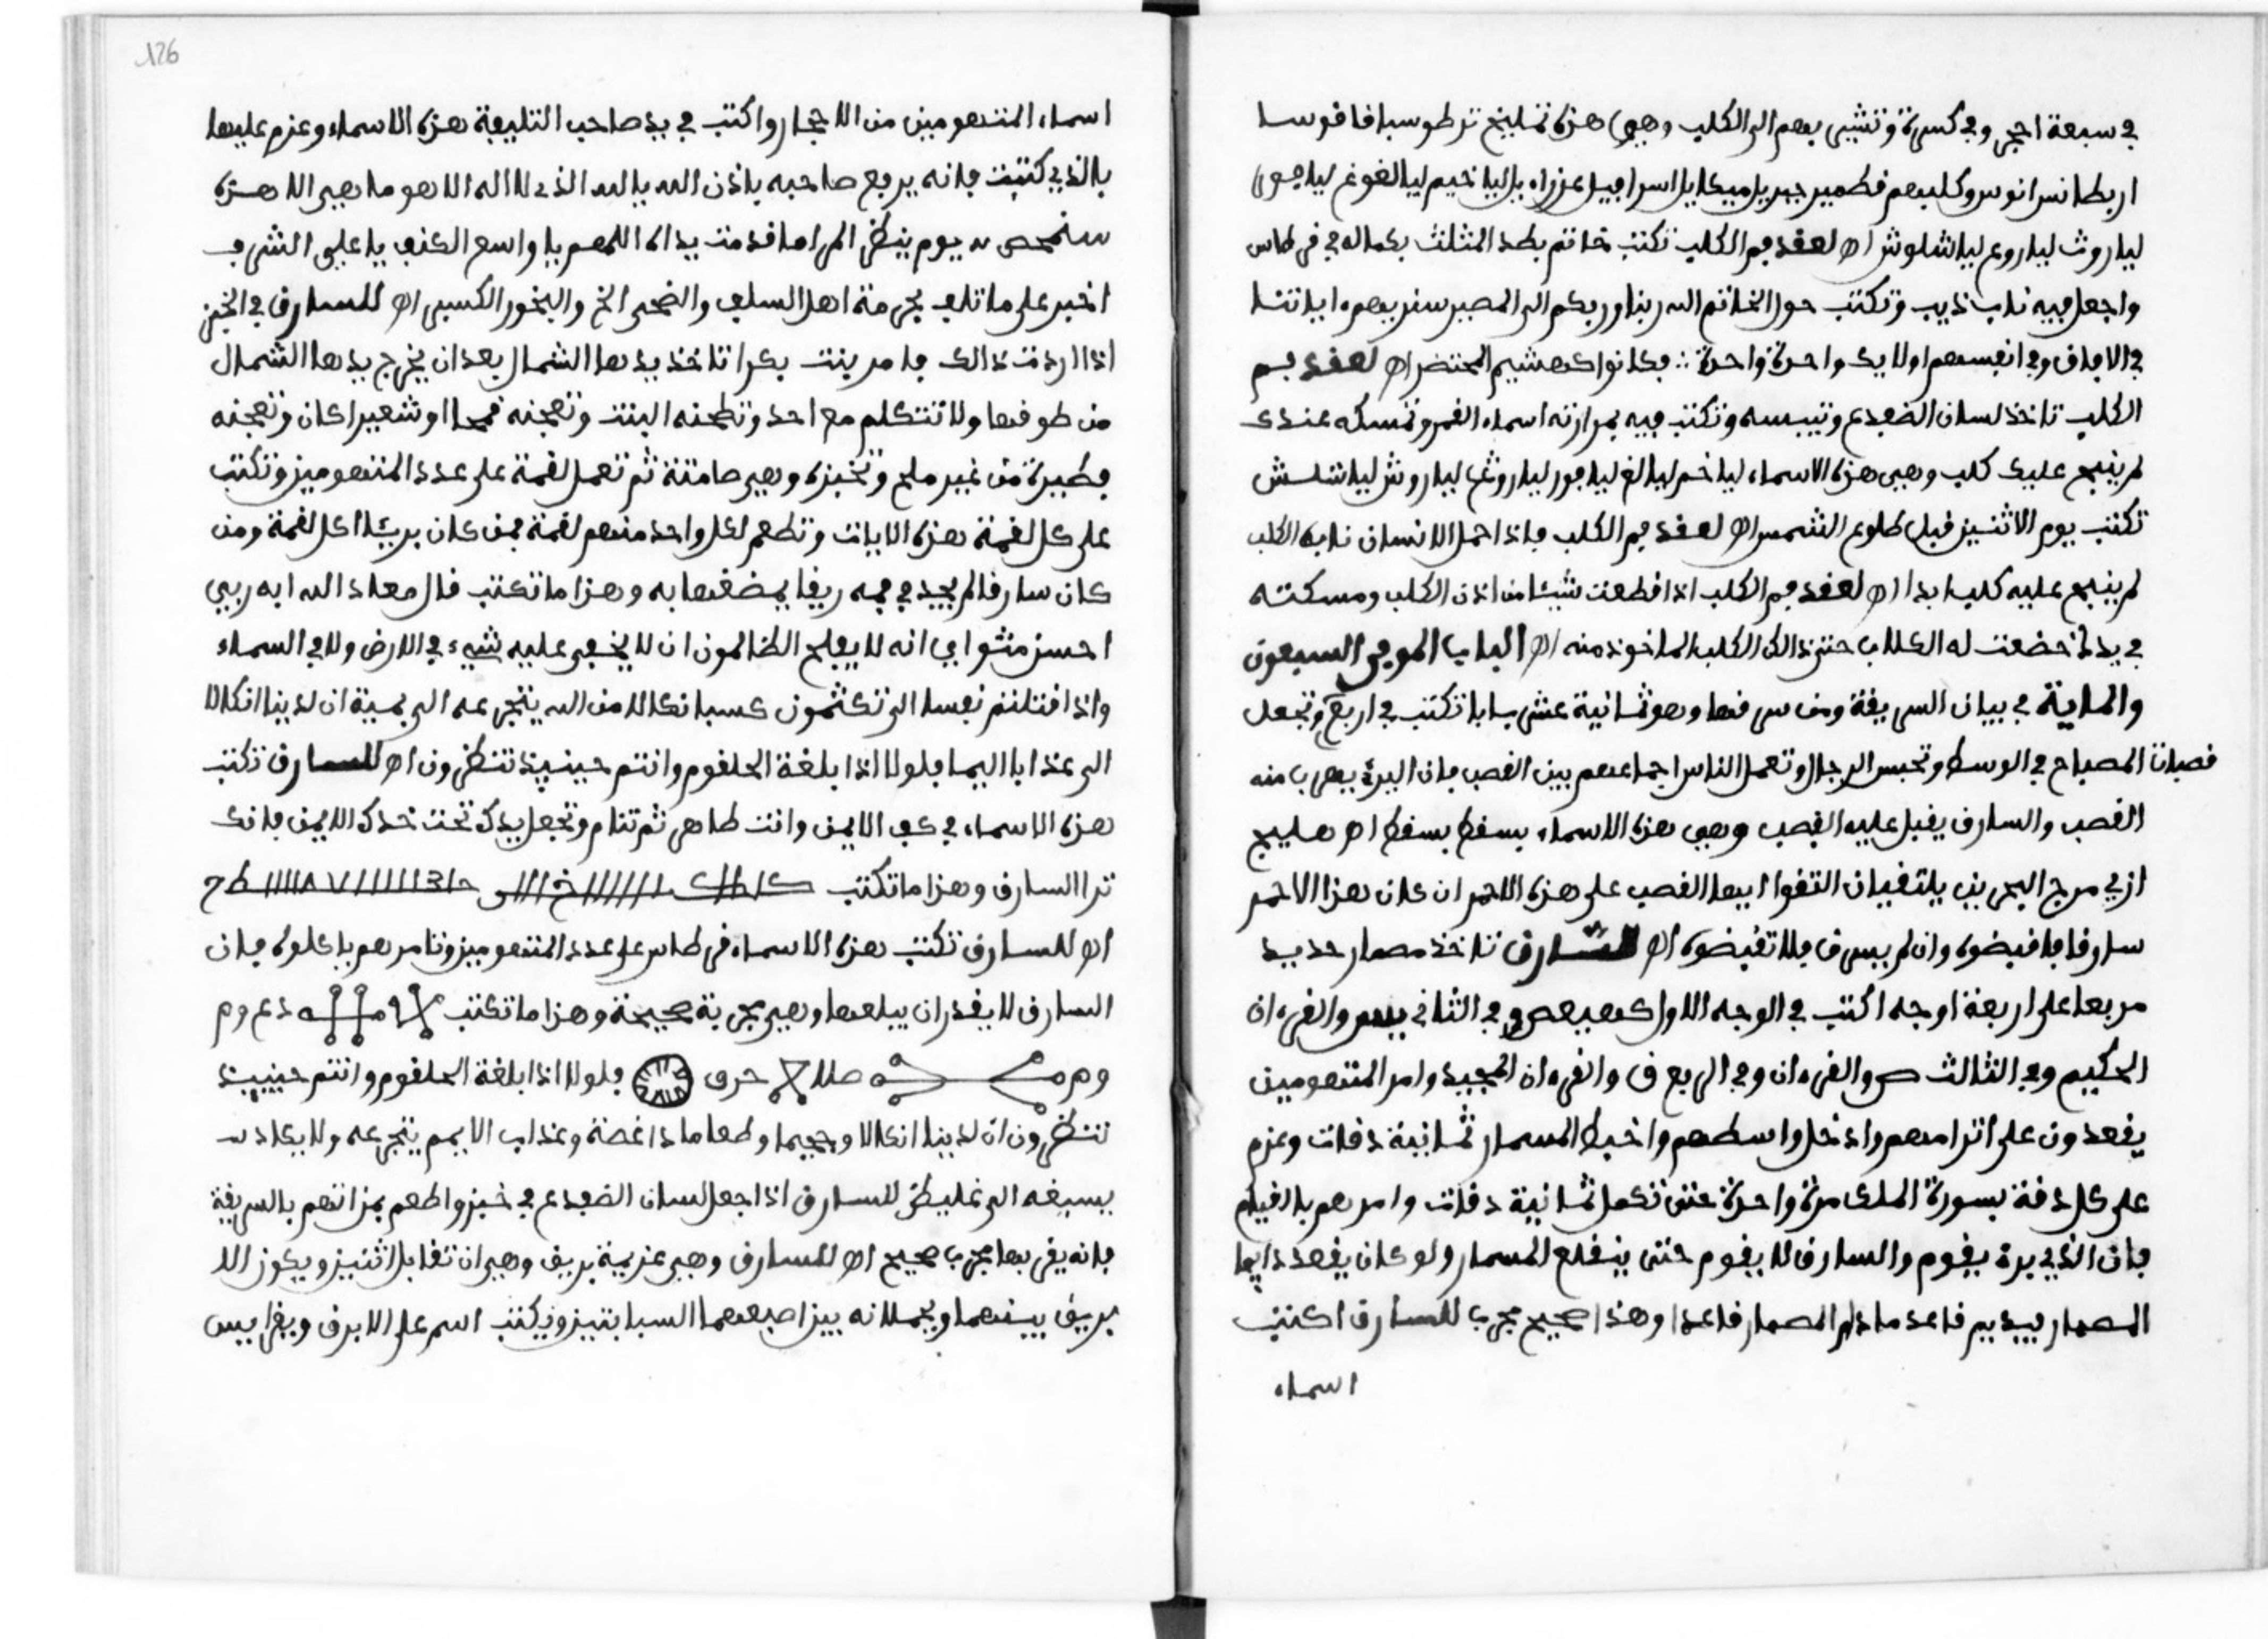 في سبعة احجر وفي كسرة وتشير بهم الى الكلب وهي هذه تمليخ ترطوسا فافوسا
اربطانس انوس وكلبهم قطمير جبريل ميكايل اسرافيل عزراءيل ليا خيم ليا لغو ليا
ليا روث ليا روع ليا شلوش اه لعقد فم الكلب تكتب خاتم بطد المثلث بكماله في طاس
واجعل فيه ناب ذيب وتكتب حول الخاتم الله ربنا وربكم الى المصير سنريهم ءاياتنا
في الافاق وفي انفسهم اولا يك واحدة واحدة فكانوا كهشيم المحتضر اه لعقد فم
الكلب تاخذ لسان الضفدع وتيبسه وتكتب فيه اسماء القمر وتمسكه عندك
لم ينبح عليك كلب وهي هذه الاسماء ليا خم ليا لغ ليا فور ليا روث ليا روش ليا شلش
تكتب يوم الاثنين قبل طلوع الشمس اه لعقد فم الكلب فاذا حمل الانسان ناب الكلب
لم ينبح عليه كلب ابدا اه لعقد فم الكلب اذا قطعت شيئا من اذن الكلب ومسكته
في يدك خضعت له الكلاب حتى ذالك الكلب الماخوذ منه اه الباب الموفي السبعون
والماية في بيان السريقة ومن سرقها وهو ثمانية عشر بابا تكتب في اربع وتجعل
قصبات المصباح في الوسط وتحبس الرجال وتعمل الناس اجماعهم بين القصب فان البرئ يهرب منه
القصب والسارق يقبل عليه القصب وهي هذه الاسماء بسقط بسقط اه هليج
ازي مرج البحرين يلتقيان التقوا ايها القصب على هذه الاحمر ان كان هذا الاحمر
سارقا فاقبضوه وان لم يسرق فلا تقبضوه اه للسارق تاخذ مصمار حديد
مربعا على اربعة اوجه اكتب في الوجه الاول كهيعص وفي الثاني يس والقرءان
الحكيم وفي الثالث ص والقرءان وفي الربع ق والقرءان المجيد وامر المتهومين
يقعدون على اترامهم وادخل واسطهم واخبط المسمار ثمانية دقات وعزم
على كل دقة بسورة الملك مرة واحدة حتى تكمل ثمانية دقات وامرهم بالقيام
فان الذي برئ يقوم والسارق لا يقوم حتى ينقلع المسمار ولو كان يقعد دايما
المصمار قاعد ما دام المصمار قاعدا وهذا صحيح مجرب للسارق اكتب
اسماء
126
اسماء المتهومين من الاحجار واكتب في يد صاحب التليفة هذه الاسماء وعزم عليها
بالذي كتبت فانه يرجع صاحبه باذن الله بالله الذي لا اله الا هو ما هي الا هذه
يوم ينظر المرء ما قدمت يداه اللهم يا واسع الكنف يا علي الشرف
اخبر على ما تلف بحرمة اهل السلف والضحى الخ والبخور الكسبر اه للسارق في الخبز
اذا اردت ذالك فامر بنت بكرا تاخذ بيدها الشمال بعد ان يخرج يدها الشمال
من طوقها ولا تتكلم مع احد وتطحنه البنت وتعجنه قمحا او شعيرا كان وتعجنه
فطيرة من غير ملح وتخبزه وهي صامتة ثم تعمل لقمة على عدد المتهومين وتكتب
على كل لقمة هذه الايات وتطعم لكل واحد منهم لقمة فمن كان بريئا اكل لقمة ومن
كان سارقا لم يجد في فمه ريقا يمضغها به وهذا ما تكتب قال معاذ الله انه ربي
احسن مثواي انه لا يفلح الظالمون ان لا يخفى عليه شيء في الارض ولا في السماء
واذا قتلتم نفسا الى تكتمون كسبا نكالا من الله يتجرعه الى بمية ان لدينا انكالا
الى عذابا اليما فلولا اذا بلغة الحلقوم وانتم حينيذ تنظرون اه للسارق تكتب
هذه الاسماء في كف الايمن وانت طاهر ثم تنام وتجعل يدك تحت خدك الايمن فانك
ترا السارق وهذا ما تكتب
اه للسارق تكتب هذه الاسماء في طاس على عدد المتهومين وتامرهم باكلوه فان
السارق لا يقدر ان يبلعها وهي مجربة صحيحة وهذا ما تكتب
فلولا اذا بلغة الحلقوم وانتم حينيذ
تنظرون ان لدينا انكالا وجحيما وطعاما ذا غصة وعذاب الاليم يتجرعه ولا يكاد
يسيغه الى غليظ للسارق اذا جعل لسان الضفدع في خبز واطعم بمن اتهم بالسريقة
فانه يقر بها مجرب صحيح اه للسارق وهي عزيمة بريق وهي ان تقابل اثنين ويكون الا
بريق بينهما ويحملانه بين اصبعهما السبابتين وتكتب اسم على الابرق ويقرا يس